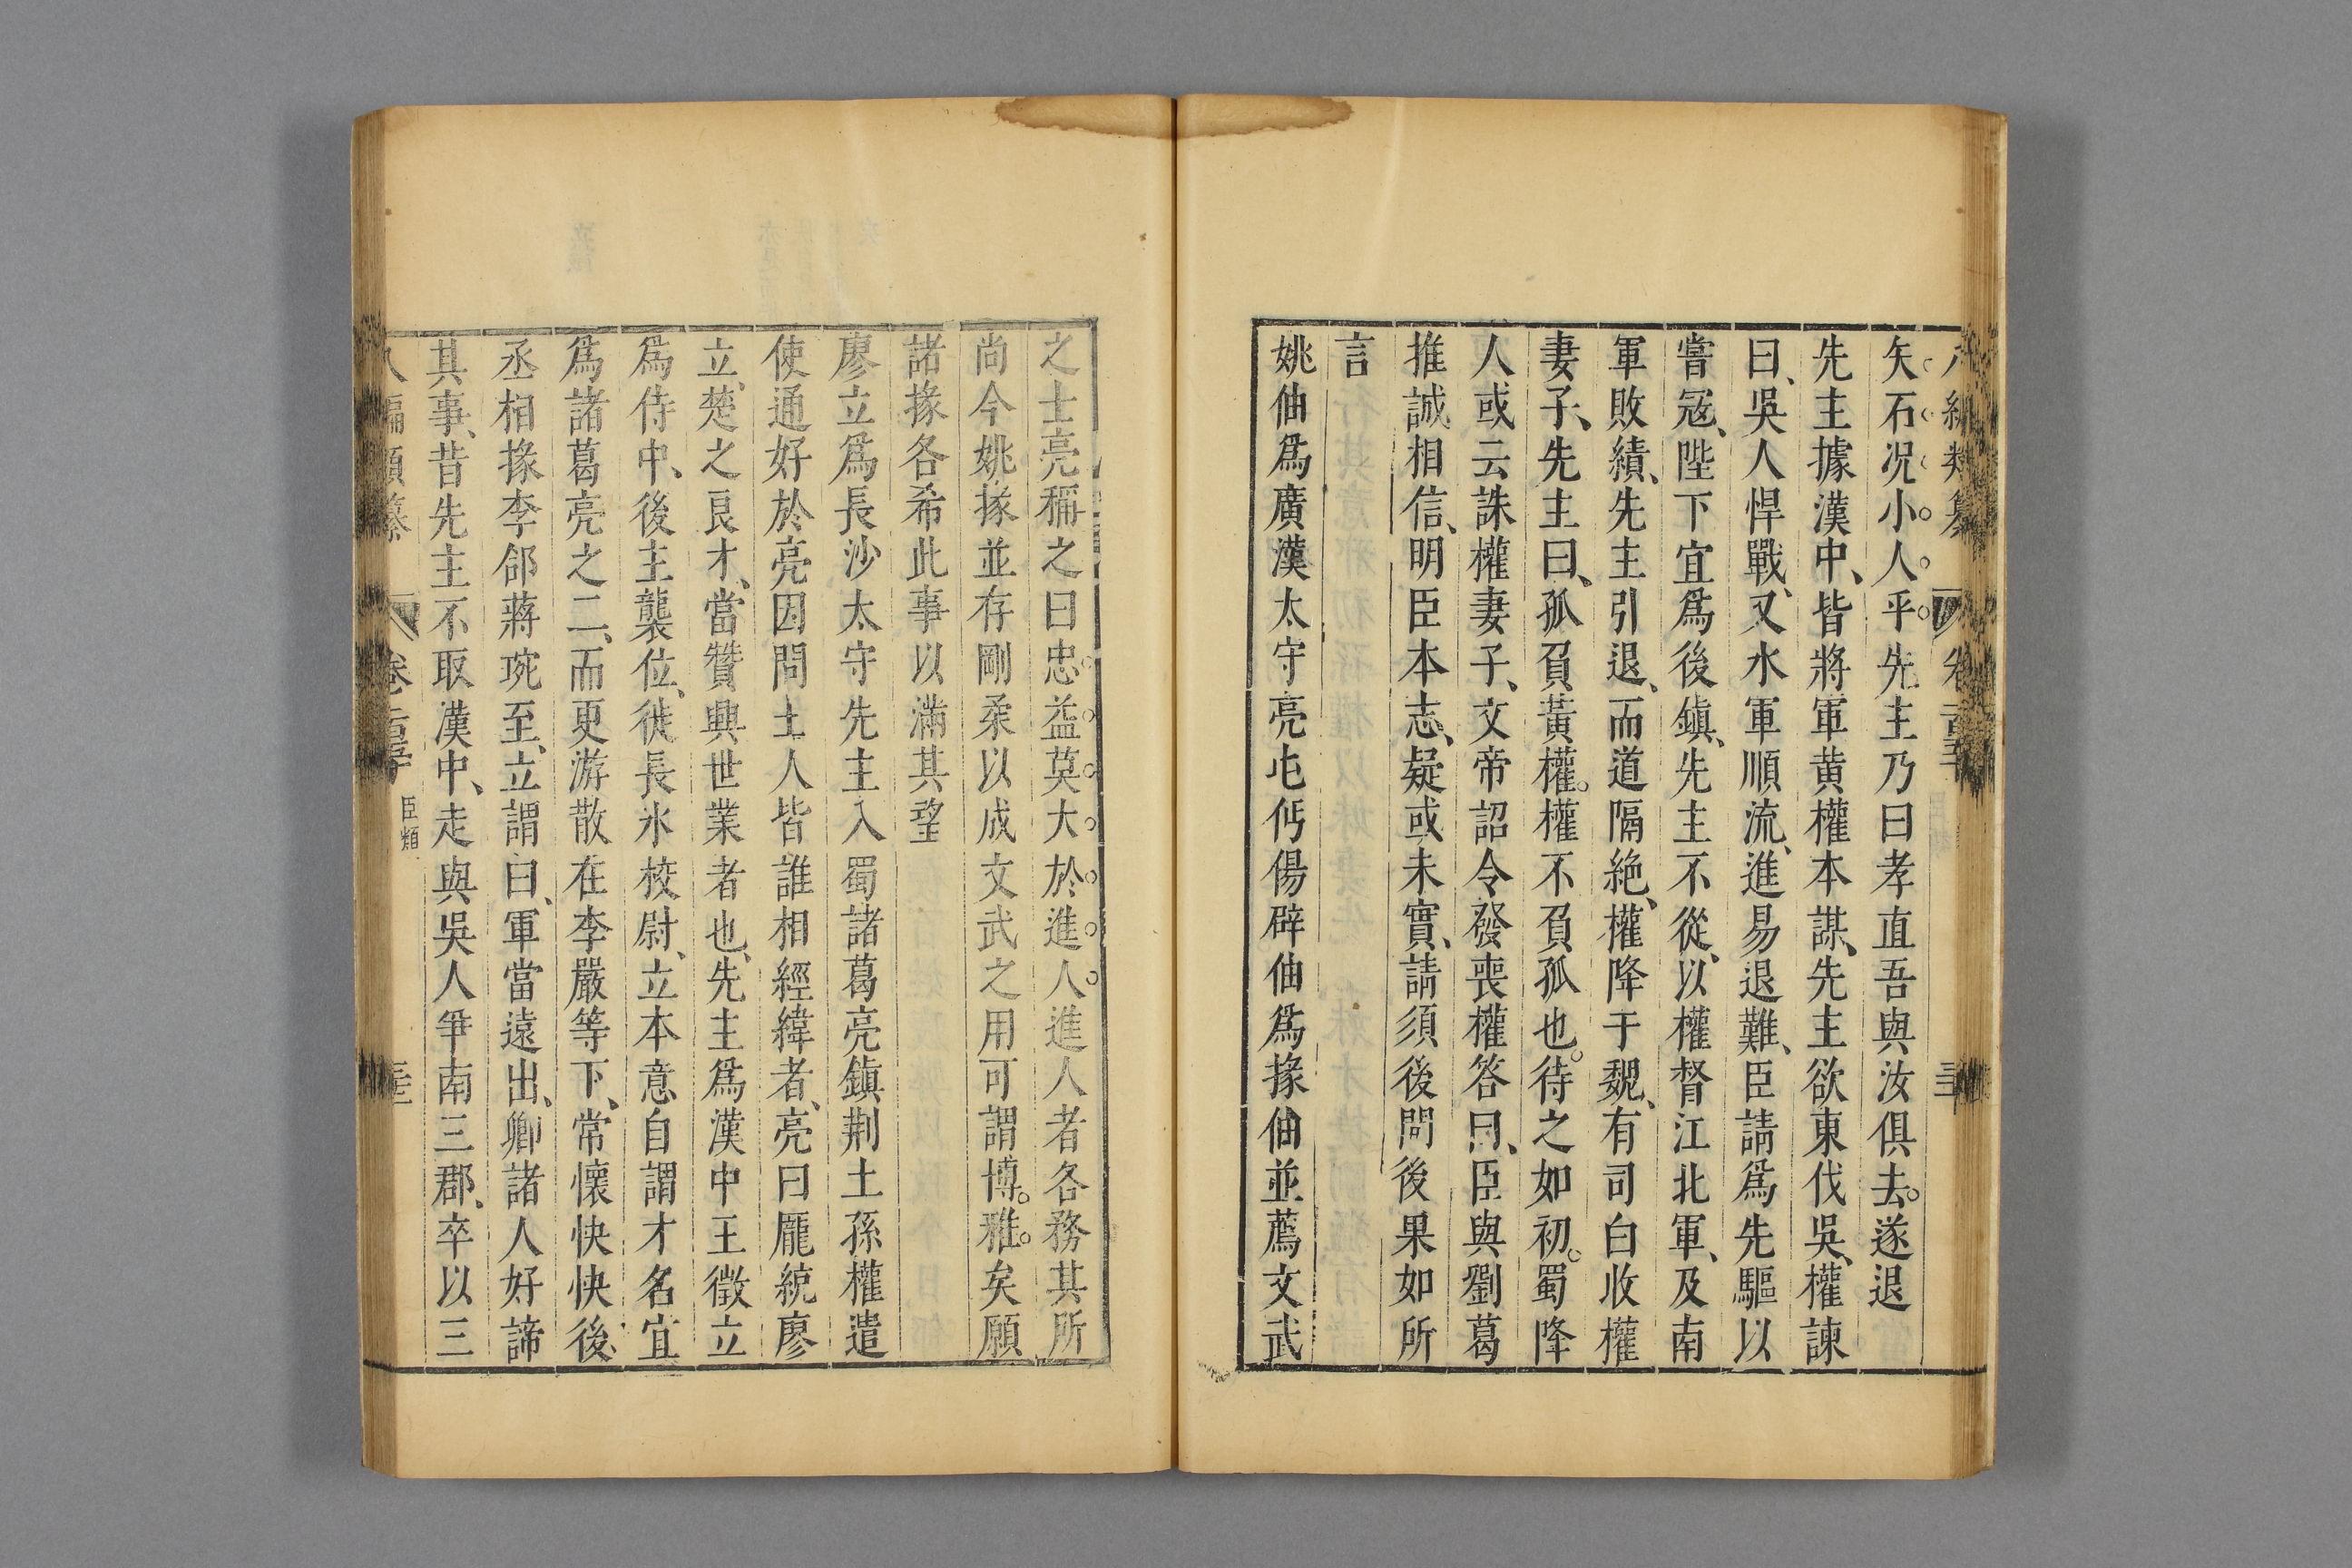 矢石況小人乎先主乃曰孝直吾與汝俱去遂退
先主據漢中、皆將軍黄權本謀、先主欲東伐吳、權諫
曰、吳人悍戰、又水軍順流、進易退難、臣請爲先驅以
嘗寇、陛下宜爲後鎮、先主不從、以權督江北軍、及南
軍敗績、先主引退、而道隔絶、權降于魏、有司白收權
妻子、先主曰、孤負黃權。權不負孤也。待之如初。蜀降
人或云誅權妻子、文帝詔令發喪權答曰、臣與劉葛
推誠相信、明臣本志、疑或未實、請須後問後果如所
言
姚伷爲廣漢太守亮屯㧕傷辟伷爲掾伷並薦文武
之士亮稱之曰忠益莫大於進人進人者各務其所
尚今姚掾並存剛柔以成文武之用可謂博雅矣願
諸掾各希此事以滿其望
廖立爲長沙太守先主入蜀諸葛亮鎮荆土孫權遣
使通好於亮因問土人皆誰相經緯者、亮曰龐統廖
立、楚之良才、當贊興世業者也、先主爲漢中王徵立
爲侍中、後主襲位、徙長水校尉、立本意自謂才名宜
爲諸葛亮之二、而更游散在李嚴等下、常懷怏怏後、
丞相掾李郃蔣琬至、立謂曰、軍當遠出、卿諸人好諦
其事、昔先主不取漢中、走與吳人爭南三郡、卒以三
編類纂 卷 臣類